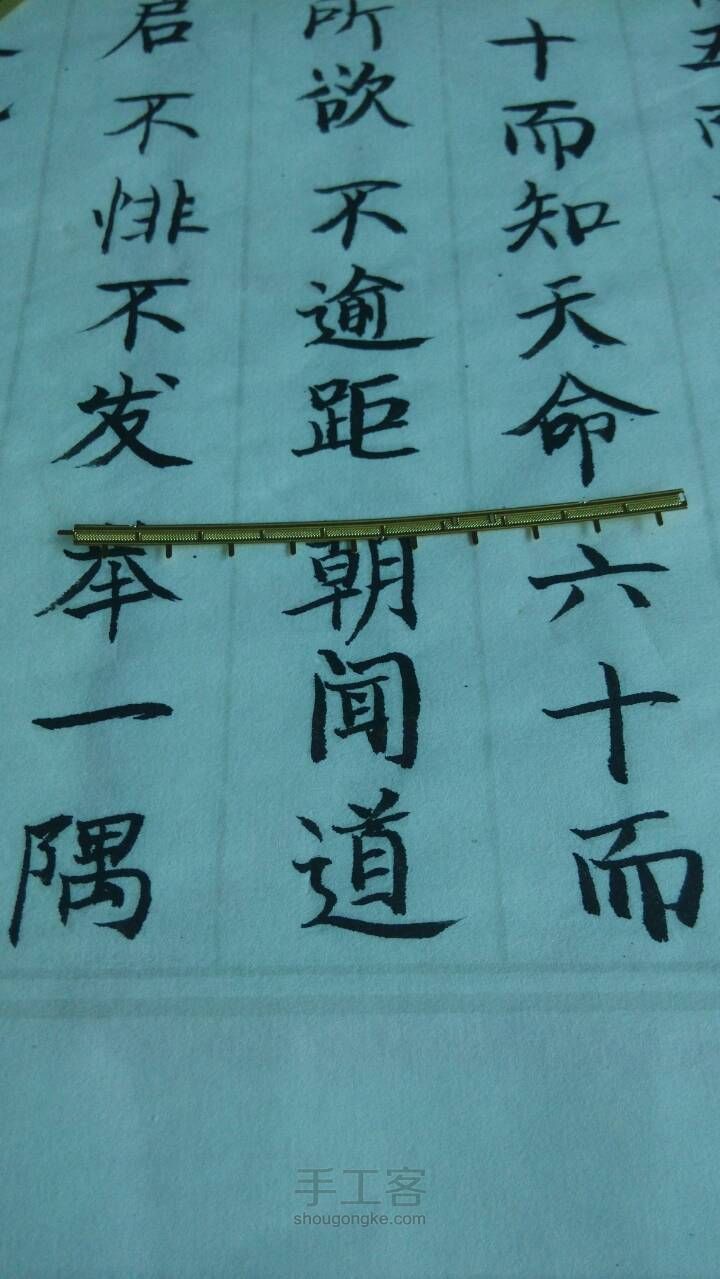 五
十而知天命六十而
所欲不逾距朝闻道
启不悱不发举一隅
手工客
shougongke.com